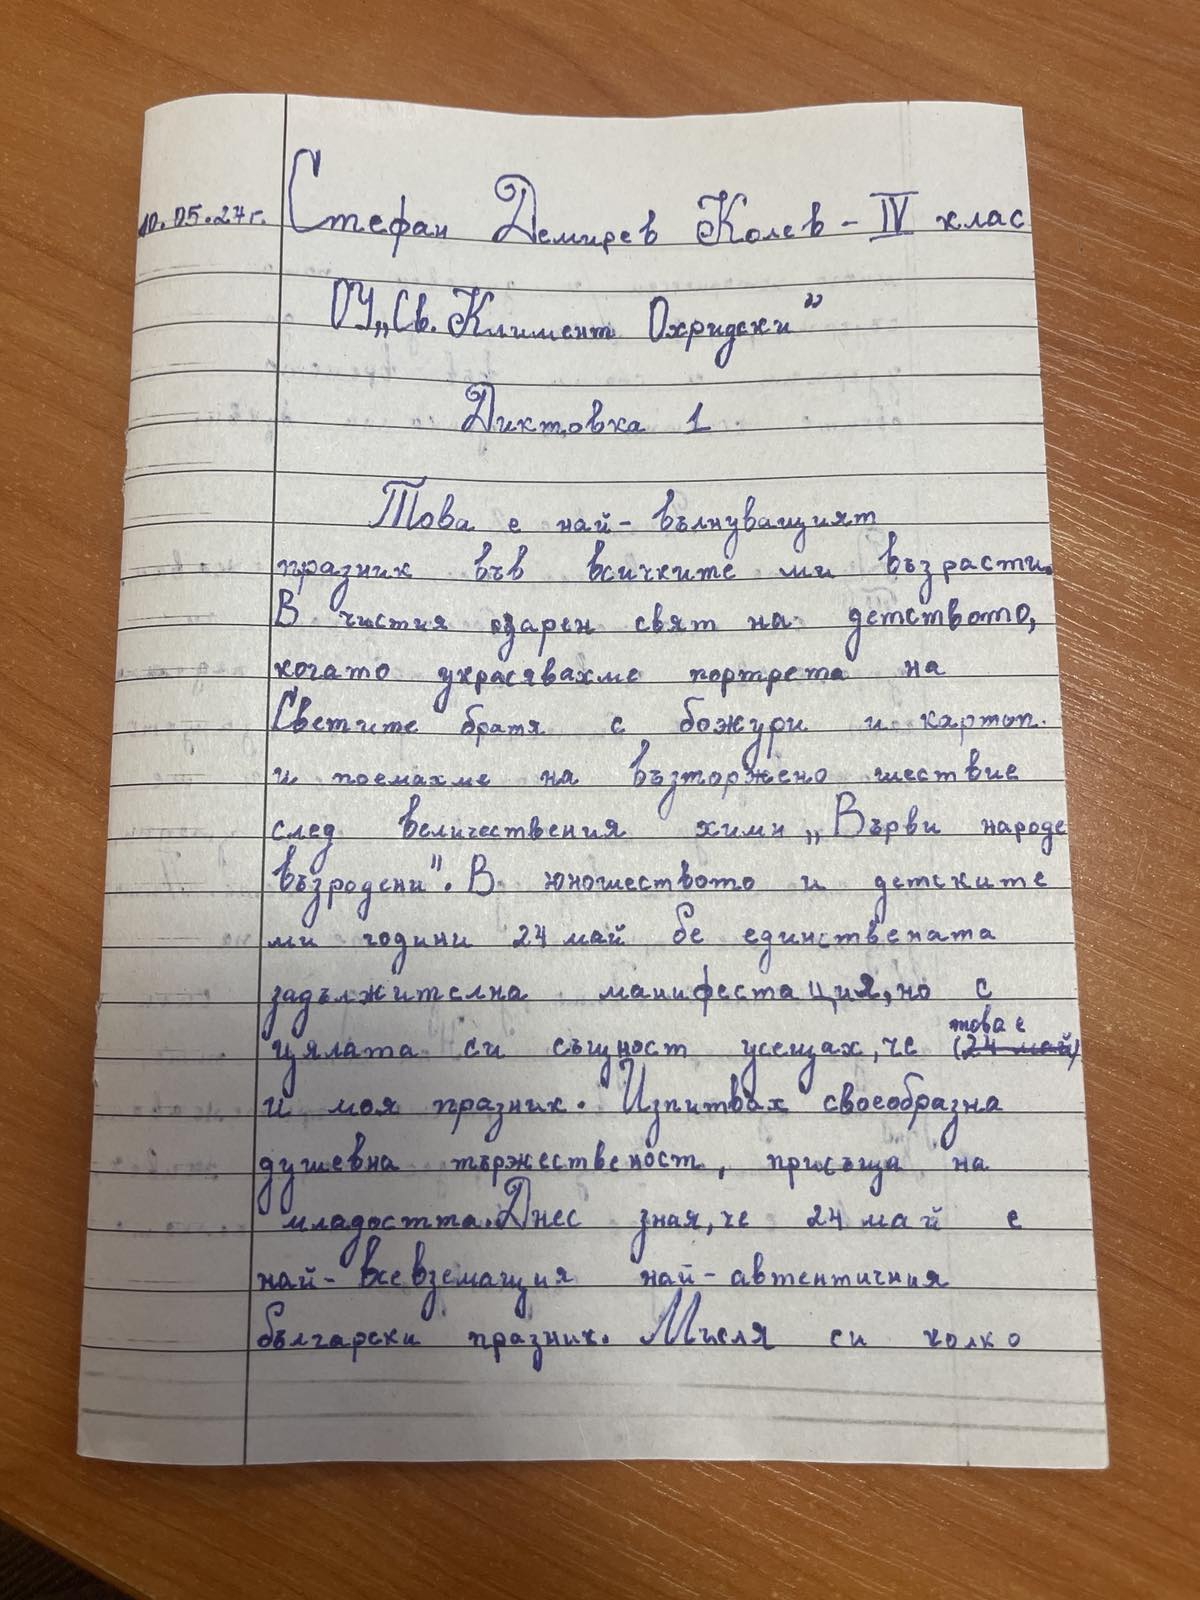 10.05.24г. Стефан Демирев Колев - IV клас
ОУ „Св. Климент Охридски"
Диктовка 1
Това е най- вълнуващият
празник във всичките ми възрасти.
В чистия озарен свят на детството,
когато украсявахме портрета на
Светите братя с божури и картоп.
и поемахме на възторжено шествие
след величествения химн „Върви народе
възродени". В юношеството и детските
ми години 24 май бе единствената
задължителна манифестация, но с
цялата си същност усещах, че това е (24 май)
и моя празник. Изпитвах своеобразна
душевна тържественост, присъща на
младостта. Днес зная, че 24 май е
най- всевземащия най- автентичния
български празник. Мисля си колко